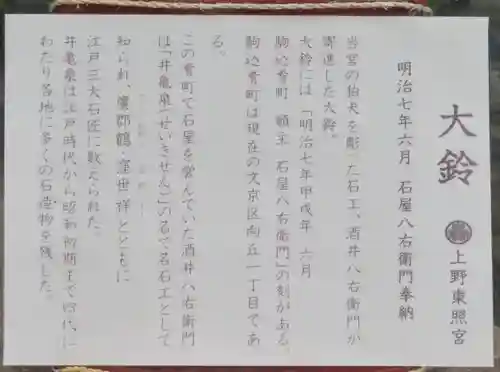 大鈴
上野東照宮
明治七年六月 石屋八右衛門奉納
当宮の狛犬を彫った石工、酒井八右衛門が
寄進した大鈴。
大鈴には「明治七年甲戌年 六月
駒込肴町 願主 石屋八右衛門」の刻がある。
駒込肴町は現在の文京区向丘一丁目であ
る。
この肴町で石屋を営んでいた酒井八右衛門
は「井亀泉(せいきせん)」の号で名石工として
知られ、廣郡鶴、窪世祥とともに
江戸三大石匠に数えられた。
井亀泉は江戸時代から昭和初期まで四代に
わたり各地に多くの石造物を残した。